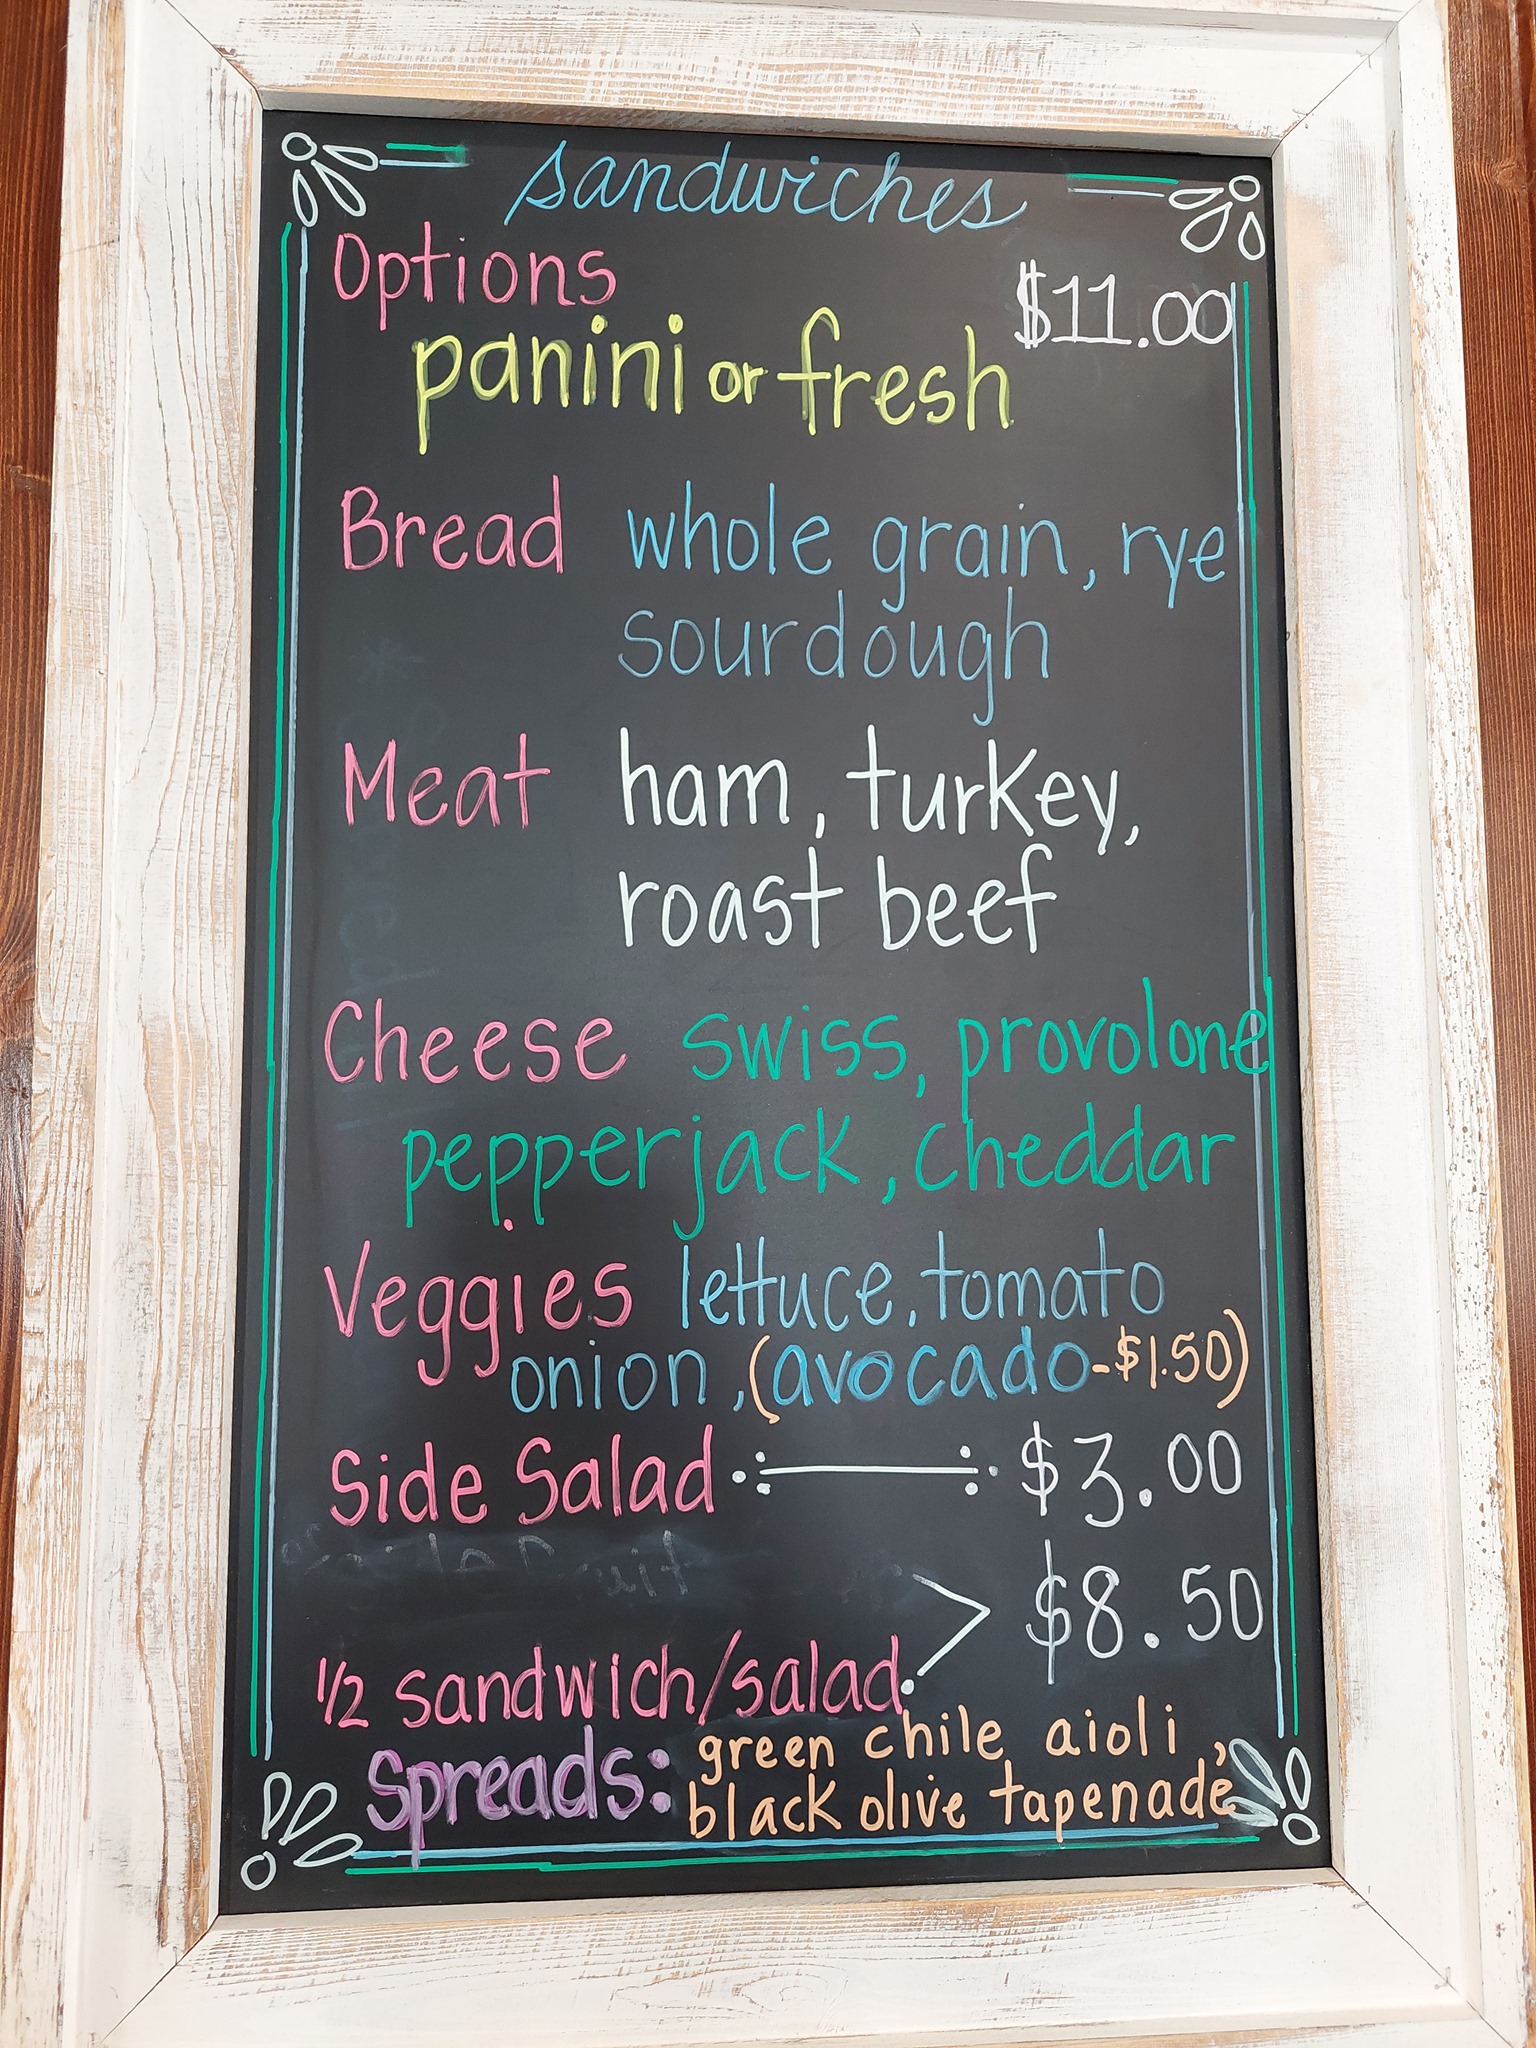 sandwiches
Options
$11.00
panini or fresh
Bread whole grain, rye
sourdough
Meat ham, turkey,
roast beef
Cheese swiss, provolone
pepperjack, cheddar
Veggies lettuce, tomato
onion, (avocado-$1.50)
Side Salad $3.00
$8.50
1/2 sandwich/salad
Spreads: green chile aioli,
black olive tapenade